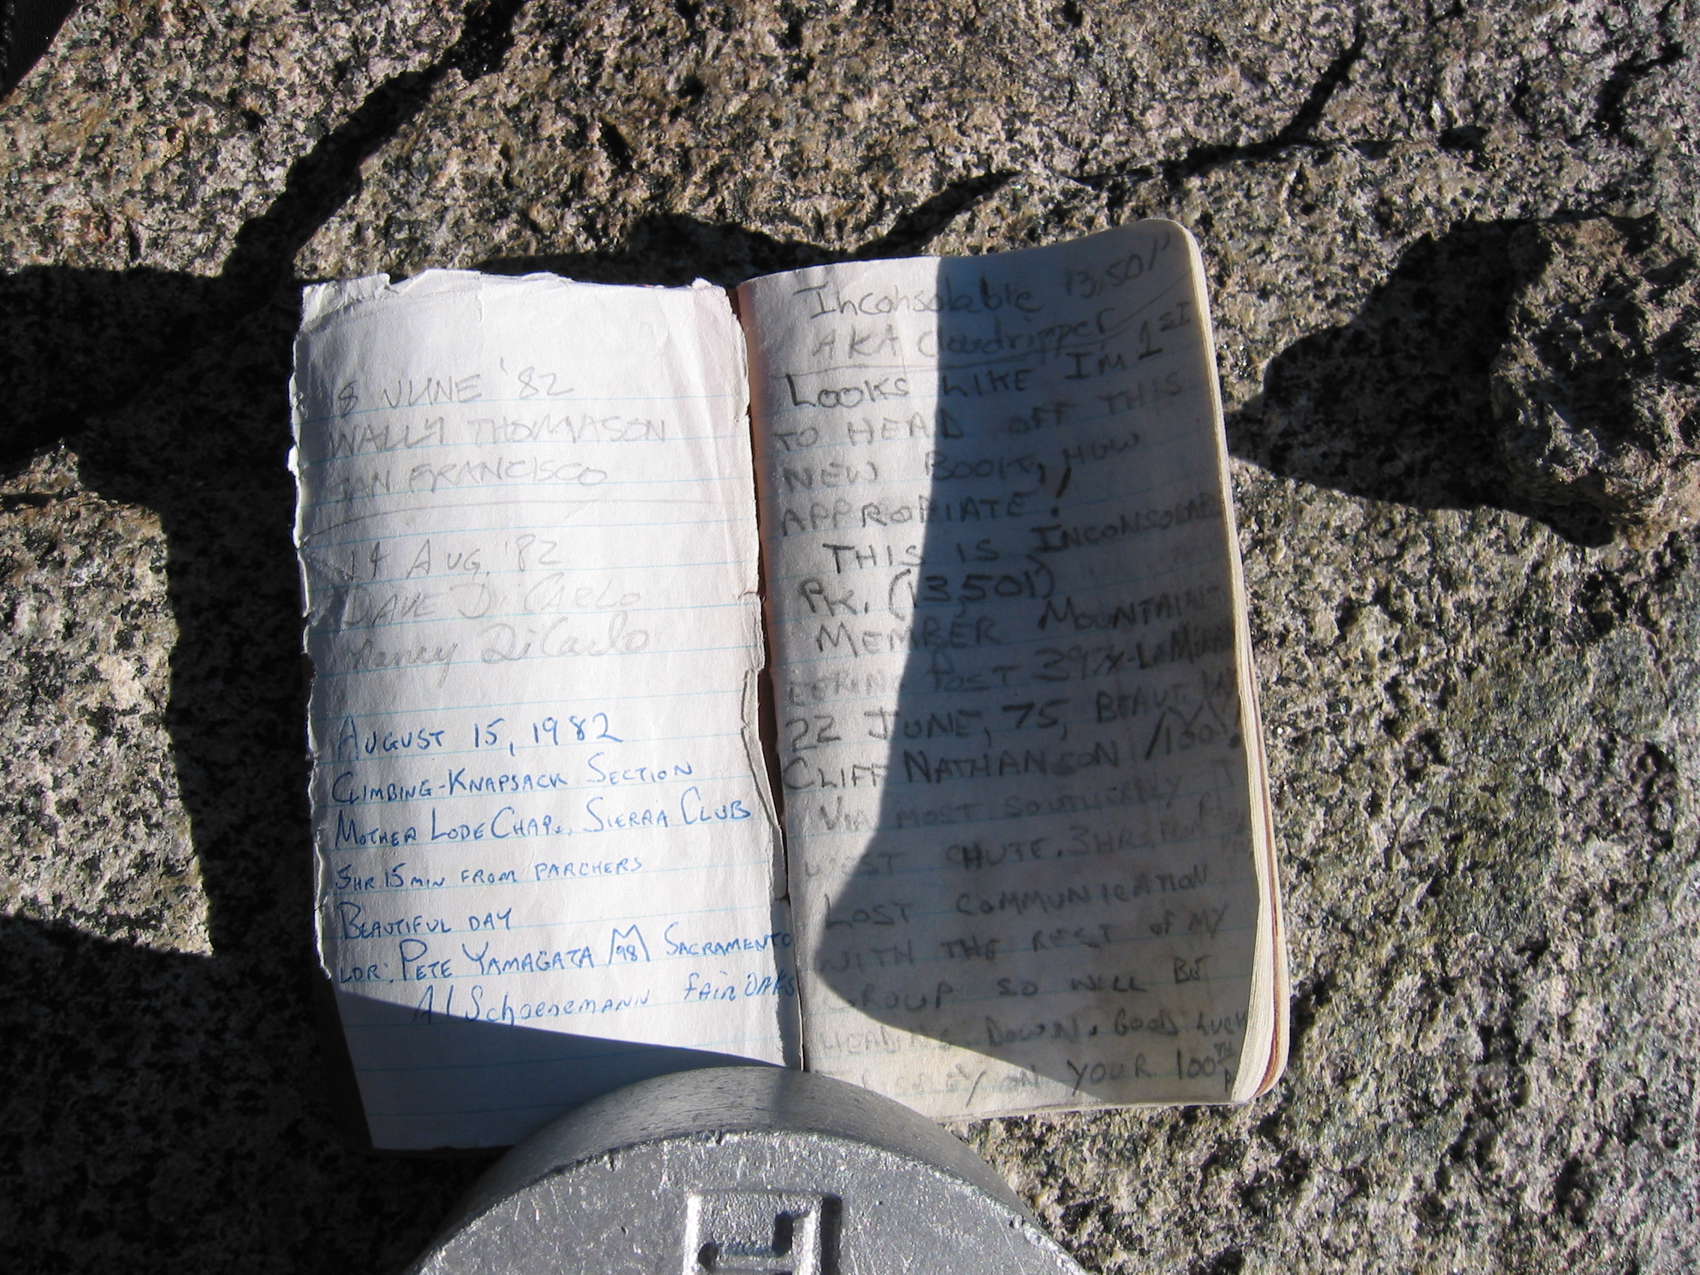 8 JUNE '82
WALLY THOMASON
SAN FRANCISCO
14 AUG. '82
DAVE DiCARLO
Nancy DiCarlo
AUGUST 15, 1982
CLIMBING-KNAPSACK SECTION
MOTHER LODE CHAP., SIERRA CLUB
5HR 15MIN FROM PARCHERS
BEAUTIFUL DAY
LDR: PETE YAMAGATA 98 SACRAMENTO
Al Schoenemann FAIR OAKS
Inconsolable 13,501'
AKA Cloudripper
LOOKS LIKE I'M 1ST
TO HEAD OFF THIS
NEW BOOK, HOW
APPROPIATE!
THIS IS INCONSOLABLE
PK. (13501')
MEMBER MOUNTAIN-
EERING POST
22 JUNE, 75,
CLIFF NATHANSON /100
VIA MOST SOUTHERLY
WEST CHUTE. 3HRS. FROM
LOST COMMUNICATION
WITH THE REST OF MY
GROUP SO WILL BE
HEADING DOWN. GOOD LUCK
ON YOUR 100TH